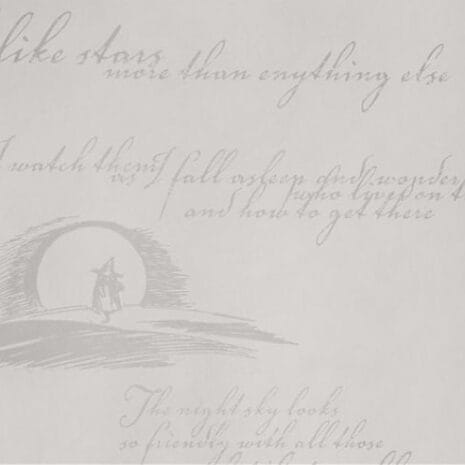 like stars
more than enything else
I watch them
as I fall asleep and wonder
who lives on
and how to get there
The night sky looks
so friendly with all those